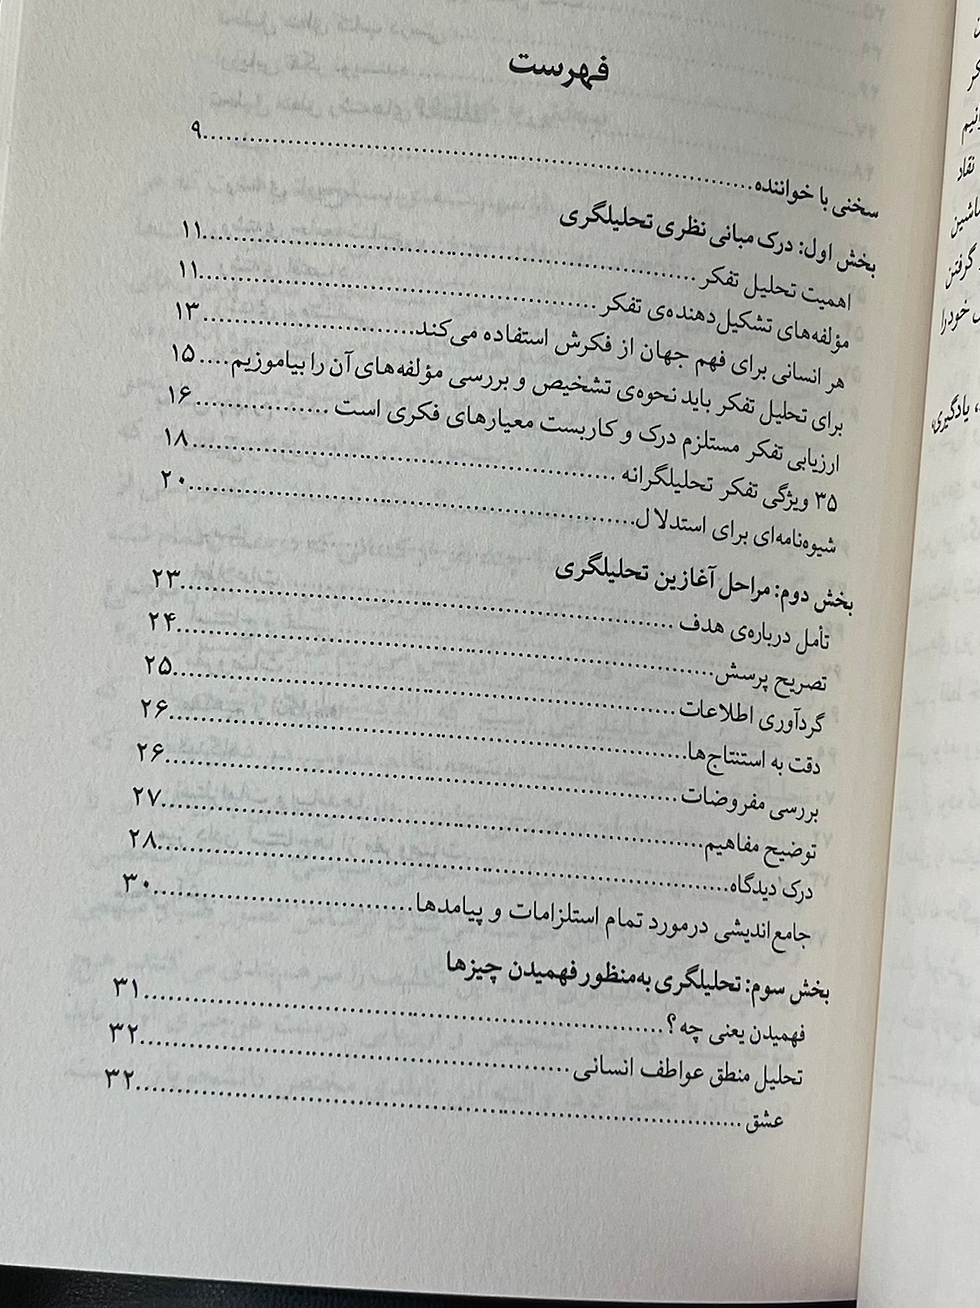 فهرست
سخنی با خواننده...........................................................۹
بخش اول: درک مبانی نظری تحلیلگری
اهمیت تحلیل تفکر...........................................................۱۱
مؤلفه‌های تشکیل‌دهنده‌ی تفکر...........................................................۱۱
هر انسانی برای فهم جهان از فکرش استفاده می‌کند..............................۱۳
برای تحلیل تفکر باید نحوه‌ی تشخیص و بررسی مؤلفه‌های آن را بیاموزیم....۱۵
ارزیابی تفکر مستلزم درک و کاربست معیارهای فکری است..................۱۶
۳۵ ویژگی تفکر تحلیلگرانه...........................................................۱۸
شیوه‌نامه‌ای برای استدلال...........................................................۲۰
بخش دوم: مراحل آغازین تحلیلگری
تأمل درباره‌ی هدف...........................................................۲۳
تصریح پرسش...........................................................۲۴
گردآوری اطلاعات...........................................................۲۵
دقت به استنتاج‌ها...........................................................۲۶
بررسی مفروضات...........................................................۲۶
توضیح مفاهیم...........................................................۲۷
درک دیدگاه...........................................................۲۸
جامع‌اندیشی درمورد تمام استلزامات و پیامدها..............................۳۰
بخش سوم: تحلیلگری به‌منظور فهمیدن چیزها
فهمیدن یعنی چه؟...........................................................۳۱
تحلیل منطق عواطف انسانی...........................................................۳۲
عشق...........................................................۳۲
نقاد
گرفتن
خود را
یادگیری،